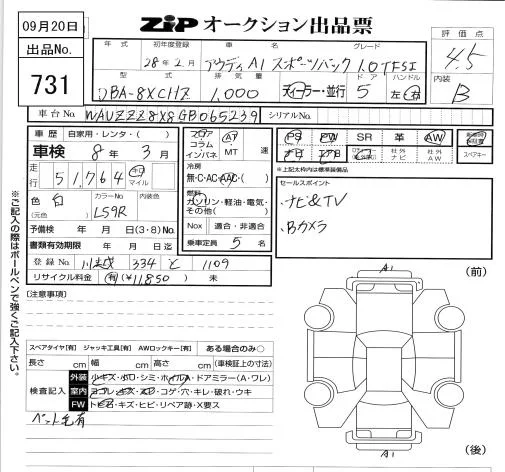 09月20日
ZIP オークション出品票
出品No.
731
評価点
4.5
内装
B
年式 初年度登録 車名 グレード
28年2月 アウディA1 スポーツバック 1.0TFSI
型式 排気量 ドア ハンドル
DBA-8XCHZ 1,000 ディーラー・並行 5 左・右
車台No. WAUZZZ8X8GB065239 シリアルNo.
車歴 自家用・レンタ・( )
車検 8年3月
走行 51,764 キロ マイル
色 白 (元色) カラーNo. L59R 内装色
予備検 年 月 日(3・8)No.
書類有効期限 年 月 日迄
登録No. 川越 334 と 1109
リサイクル料金 有(¥11850) 未
フロア コラム インパネ AT MT 速
冷房
無・C・AC・AAC・( )
燃料
ガソリン・軽油・電気・その他( )
Nox 適合・非適合
乗車定員 5 名
PS PW SR 革 AW
ナビ 社外AW
スペアキー
※上記太枠内は標準装備品
セールスポイント
・ナビ&TV
・Bカメラ
【注意事項】
スペアタイヤ【有】 ジャッキ工具【有】 AWロックキー【有】 ある場合のみ○
長さ cm 幅 cm 高さ cm (車検証上の寸法)
検査記入
外装 小キズ・小凹・シミ・ホイル・ドアミラー(A・ワレ)
室内 ヨゴレ・キズ・スレ・コゲ・穴・キレ・破れ・ウキ
FW トビ石・キズ・ヒビ・リペア跡・X要ス
ペット毛有
A1
(前)
A1
(後)
※ご記入の際はボールペンで強くご記入下さい。